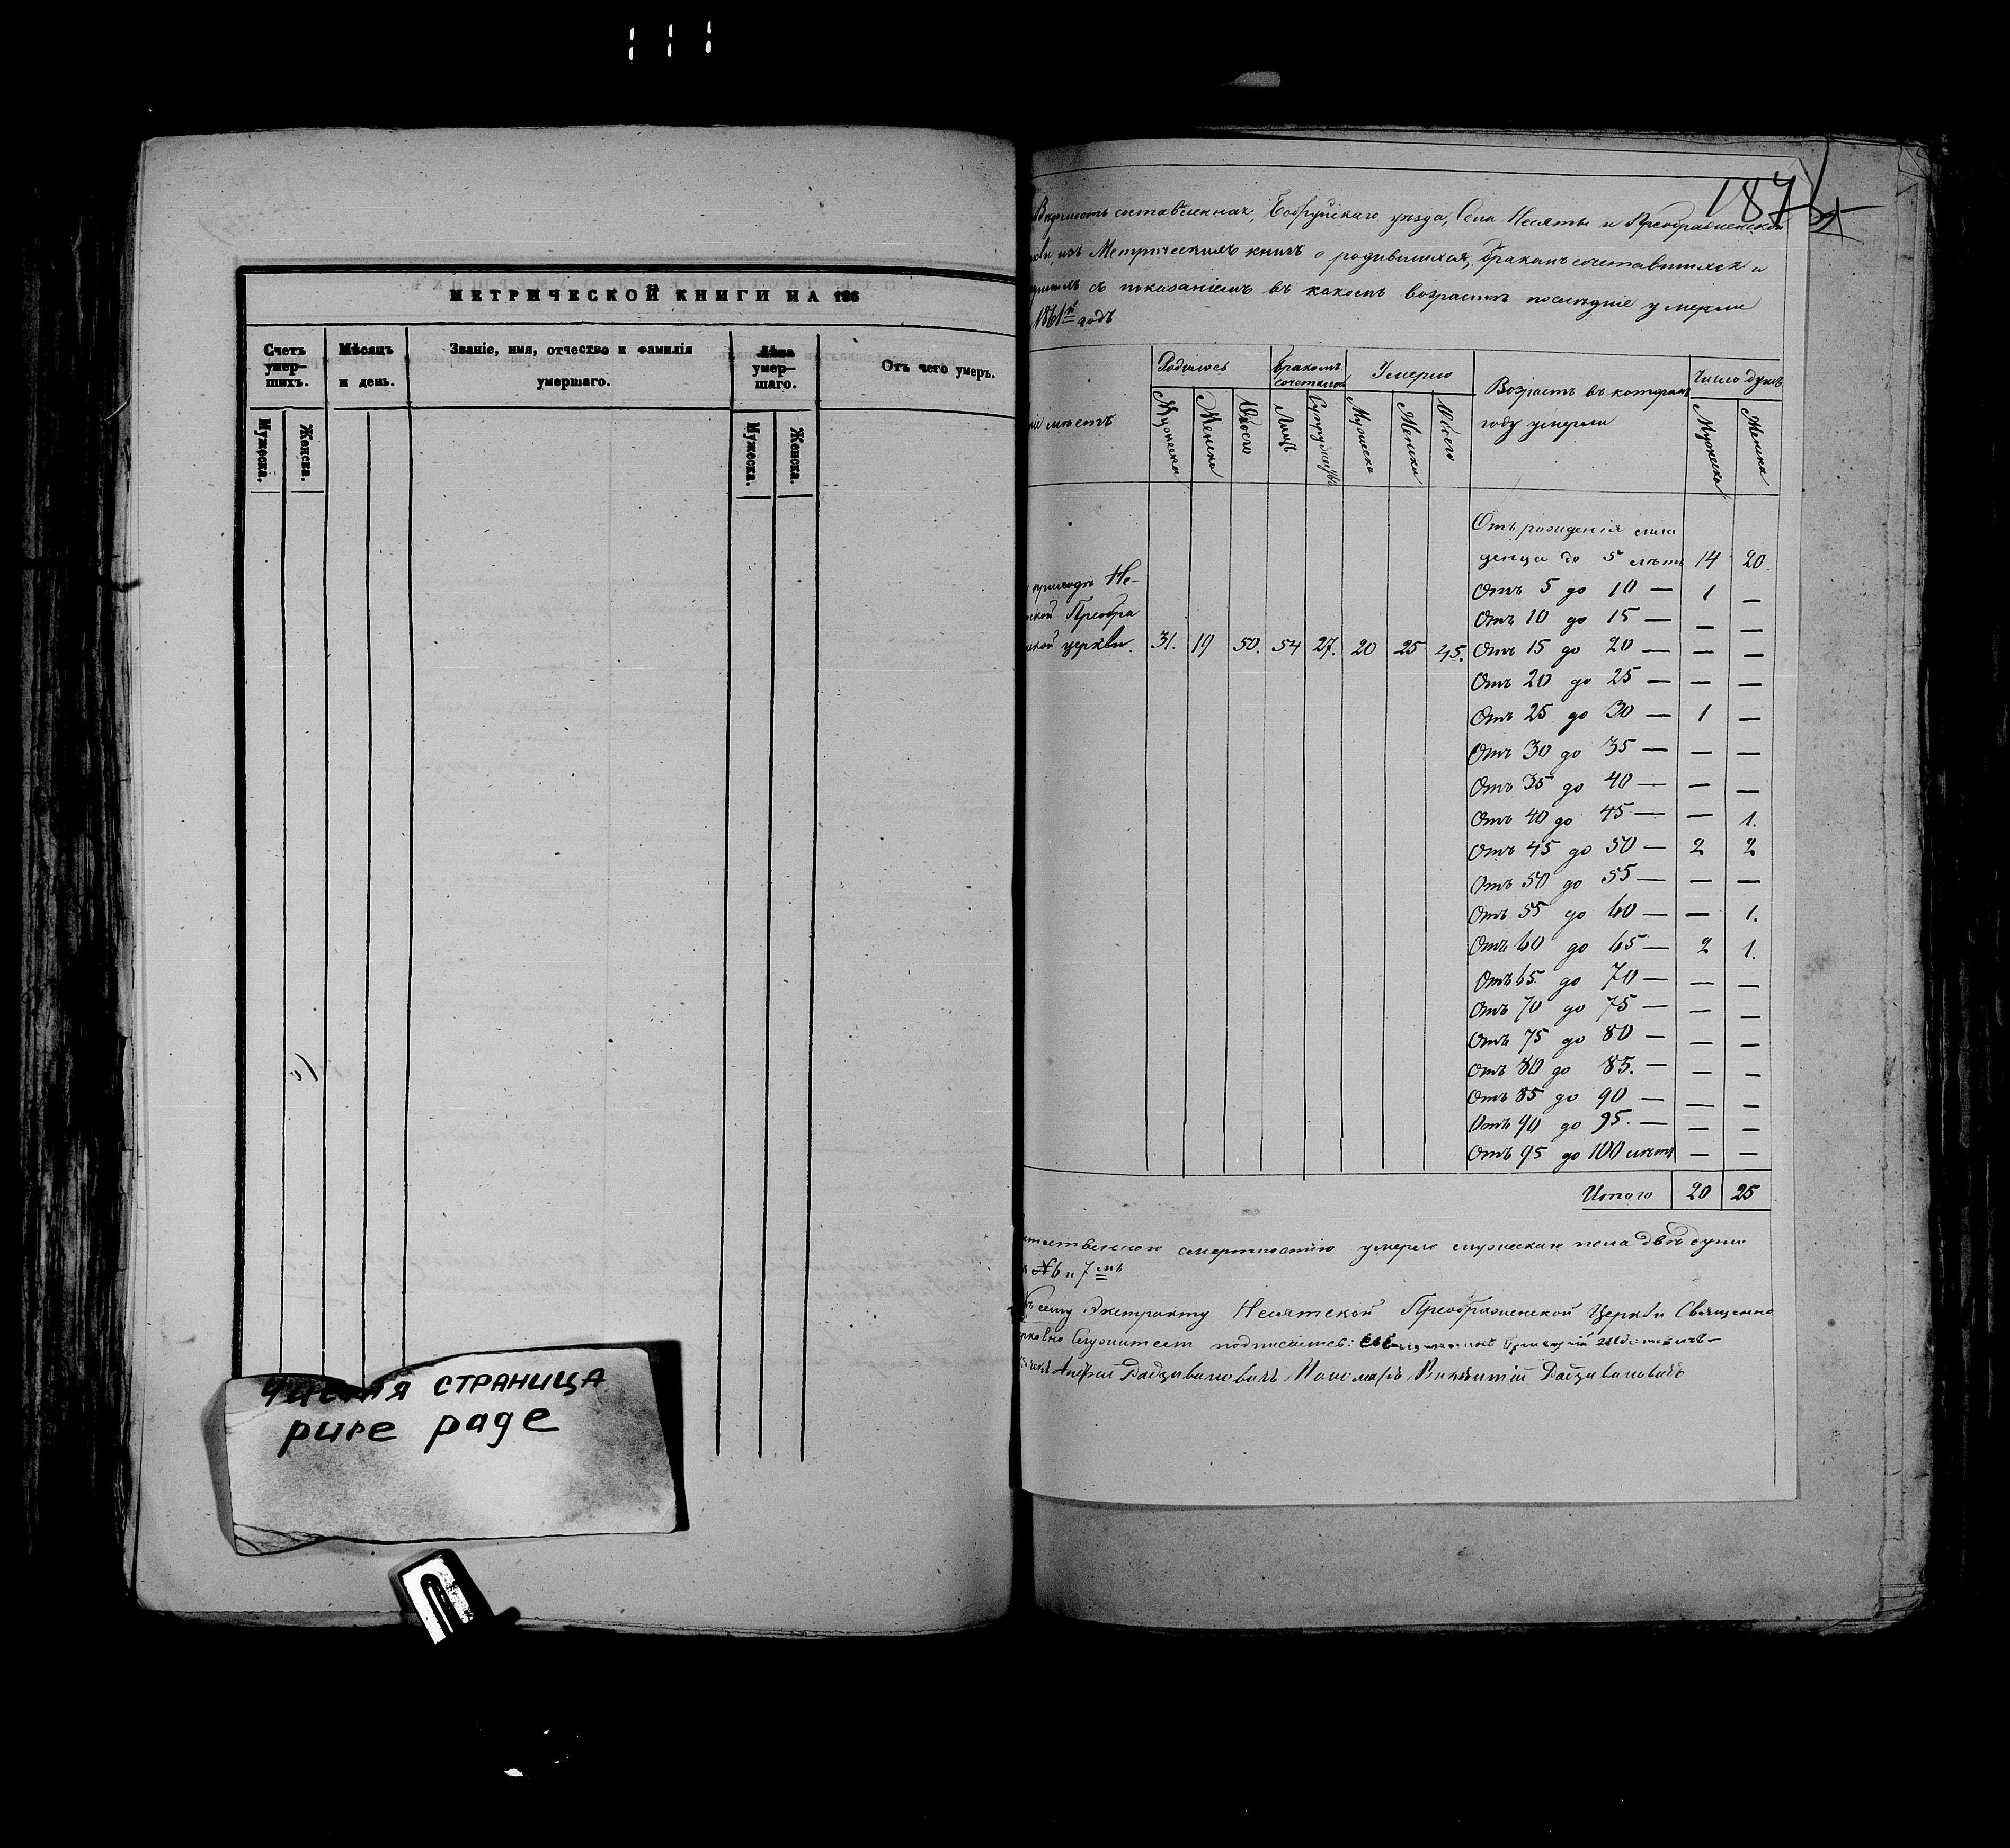 МЕТРИЧЕСКОЙ КНИГИ НА 186
Счетъ умер-шихъ.
Мѣсяцъ и день.
Званіе, имя, отчество и фамилія умершаго.
Лѣта умер-шаго.
Отъ чего умеръ.
Мужеска.
Женска.
Мужеска.
Женска.
Чистая страница
pure page
187
Вѣдомость составленная, Бобруйскаго уѣзда, Села Несяты и Преображенской
изъ Метрическихъ книгъ о родившихся, бракомъ сочетавшихся и
съ показаніемъ въ какомъ возрастѣ послѣдніе умерли
1861й годъ
мѣстъ
Родилось
Бракомъ сочеталось
Умерло
Возрастъ въ которомъ году умерли
Число душъ
Мужеска
Женска
Обоего
Лицъ
Супружествъ
Мужеска
Женска
Обоего
Мужеска
Женска
Отъ рожденія мла
денца до 5 лѣтъ 14 20
приходѣ Не-
Отъ 5 до 10 — 1 —
ской Преобра
Отъ 10 до 15 — — —
ской церкви. 31. 19 50. 54 27. 20 25 45. Отъ 15 до 20 — — —
Отъ 20 до 25 — — —
Отъ 25 до 30 — 1 —
Отъ 30 до 35 — — —
Отъ 35 до 40 — — —
Отъ 40 до 45 — — 1.
Отъ 45 до 50 — 2 2
Отъ 50 до 55 — — —
Отъ 55 до 60 — — 1.
Отъ 60 до 65 — 2 1.
Отъ 65 до 70 — — —
Отъ 70 до 75 — — —
Отъ 75 до 80 — — —
Отъ 80 до 85. — — —
Отъ 85 до 90 — — —
Отъ 90 до 95. — — —
Отъ 95 до 100 лѣтъ — —
Итого 20 25
смертностію умерло мужеска пола двѣ души
№ 6 и 7мъ
сему Экстракту Несятской Преображенской Церкви Священно
подписались:
Андрей Радзивановичъ Пономарь Викентій Радзивановичъ